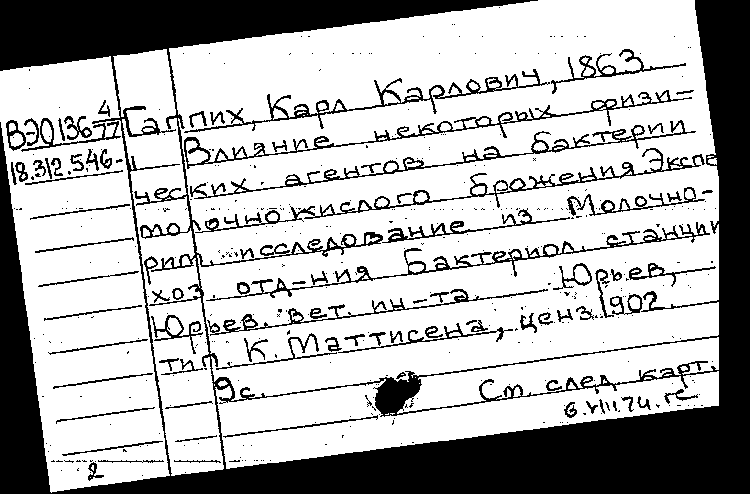 ВЭО136 4/77
18.312.546-
Гаппих, Карл Карлович, 1863.
Влияние некоторых физи-
ческих агентов на бактерии
молочнокислого брожения. Экспе
рим. исследование из Молочно-
хоз. отд-ния Бактериол. станции
Юрьев. вет. ин-та. Юрьев,
тип. К. Маттисена, ценз. 1902.
9с.
См. след. карт.
6.VIII.74.
2